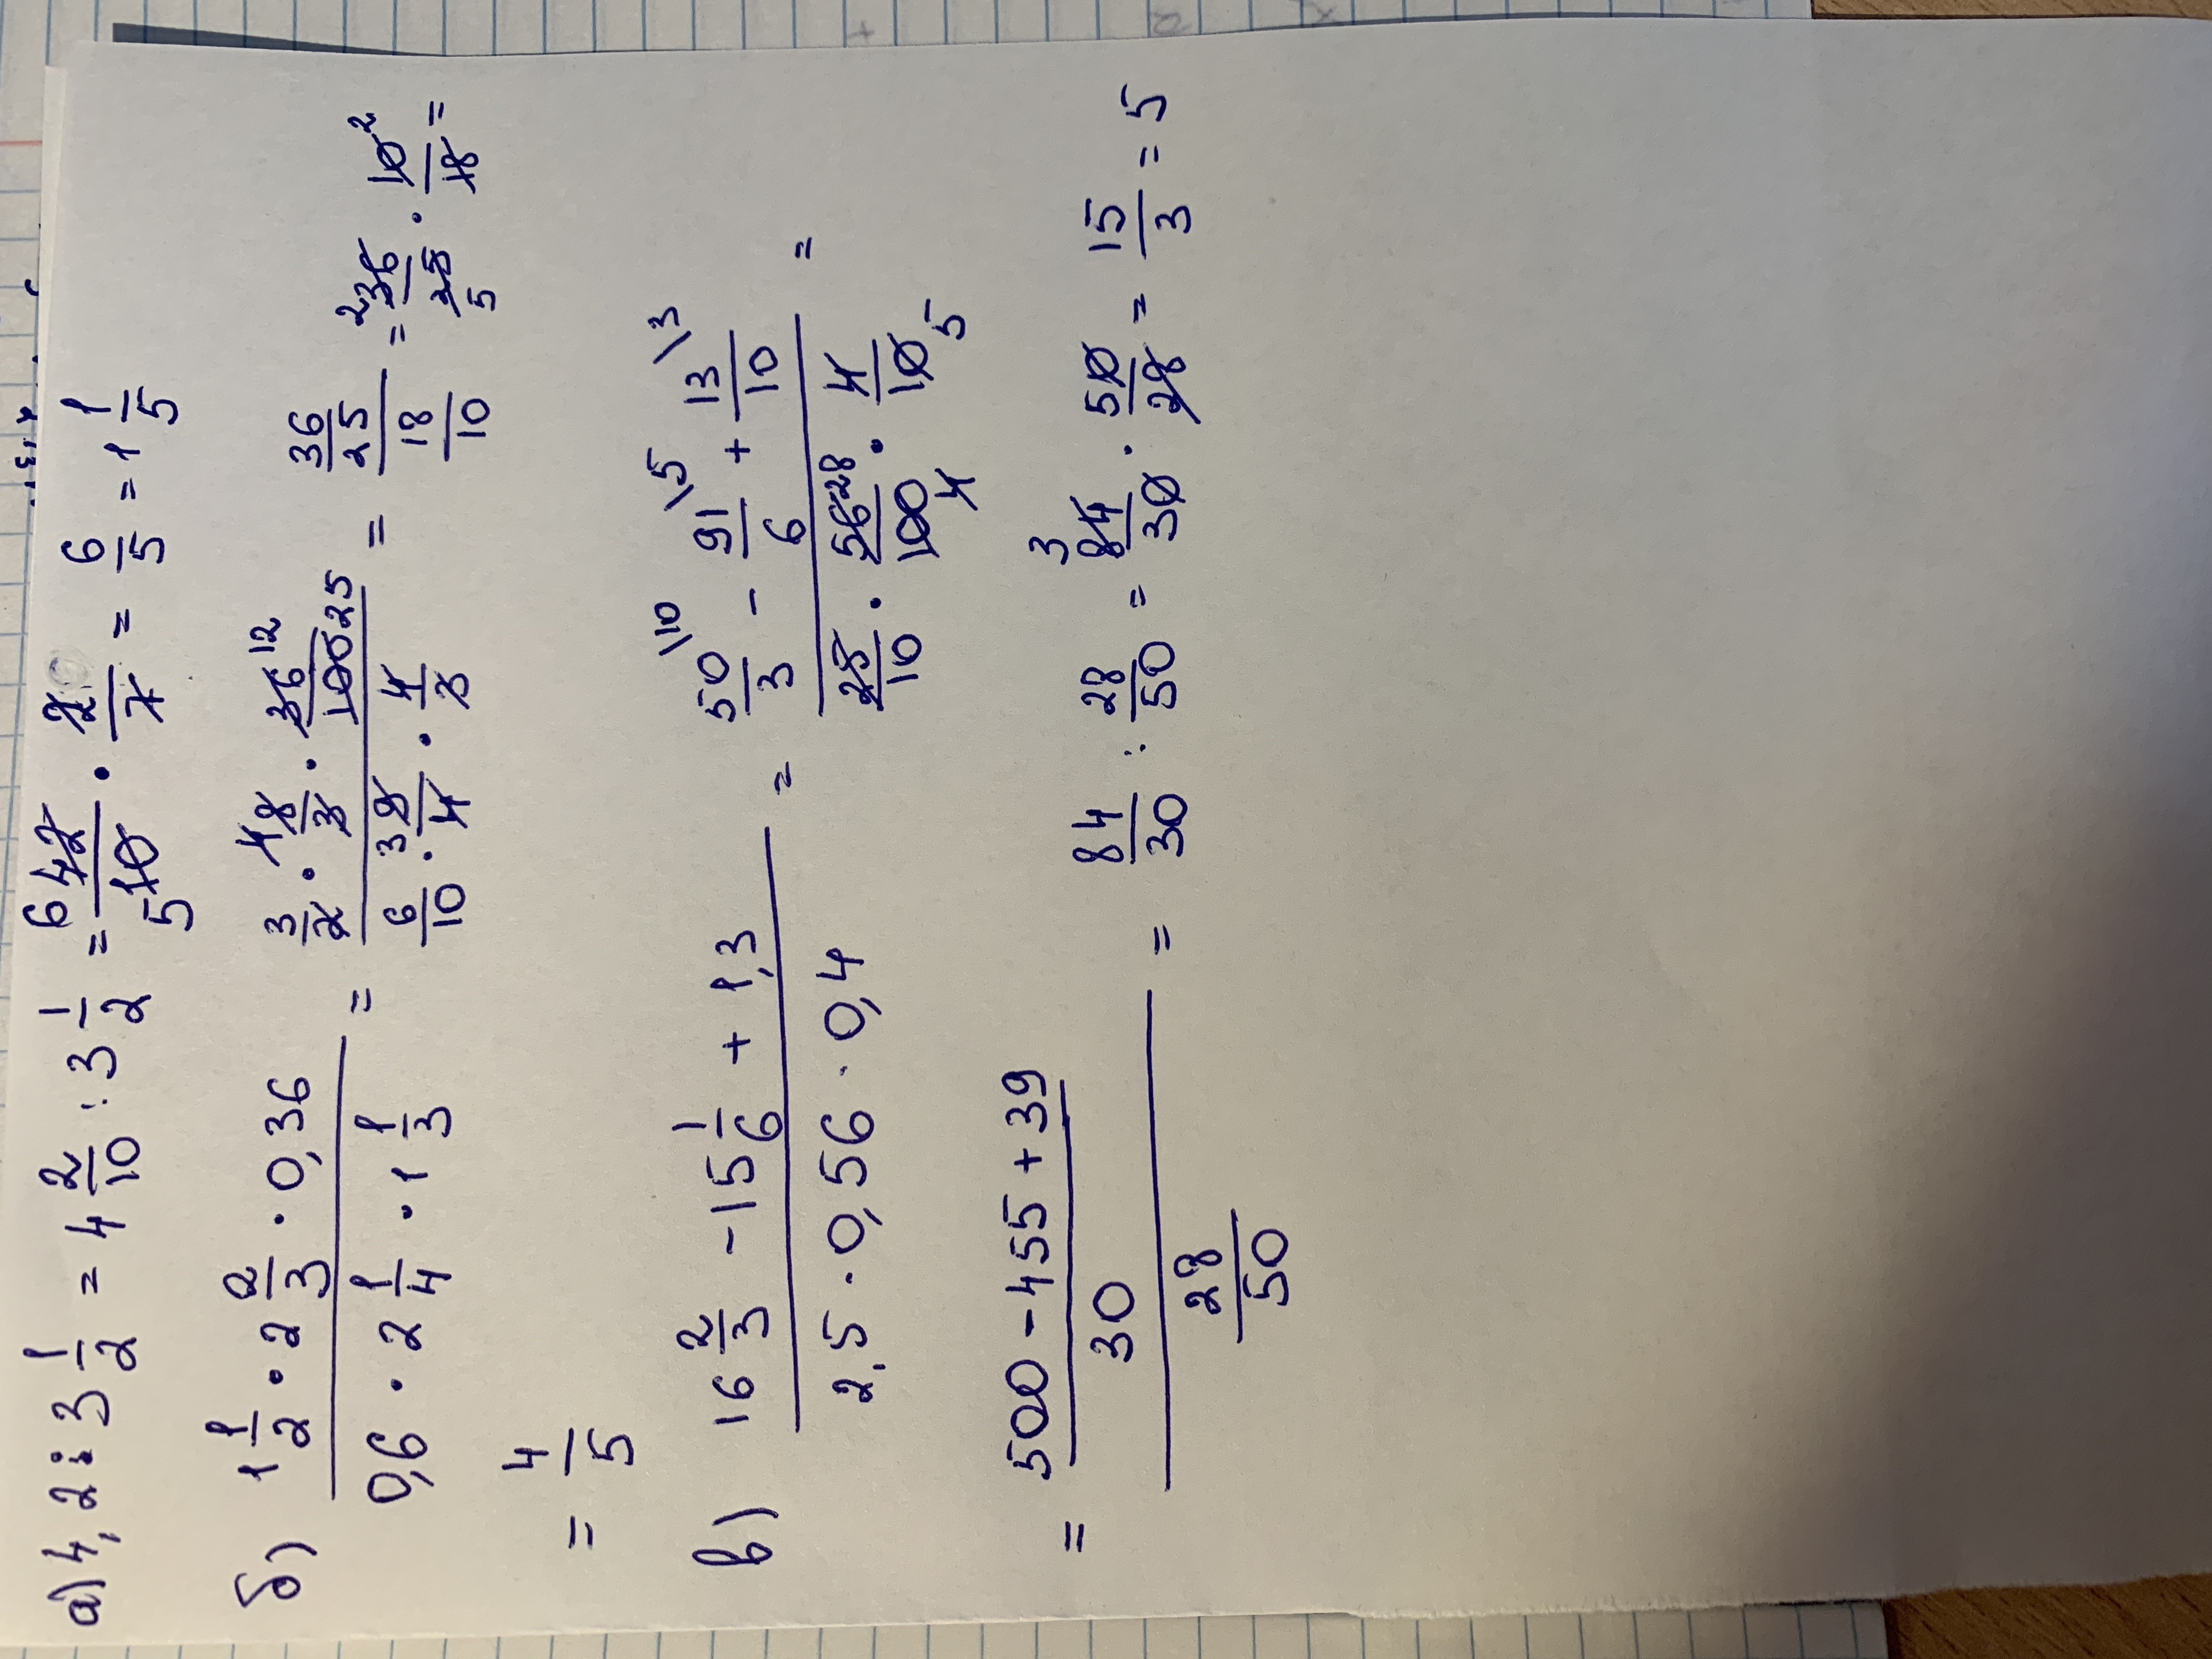 а) 4,2 : 3 1/2 = 4 2/10 : 3 1/2 = 6 42/10 5 · 2/7 = 6/5 = 1 1/5
б) (1 1/2 · 2 2/3 · 0,36)/(0,6 · 2 1/4 · 1 1/3) = (3/2 · 4 8/3 · 36 12/100 25)/(6/10 · 3 9/4 · 4/3) = (36/25)/(18/10) = 2 36/25 5 · 10 2/18 =
= 4/5
в) (16 2/3 - 15 1/6 + 1,3)/(2,5 · 0,56 · 0,4) = (50/3 \10 - 91/6 \5 + 13/10 \3)/(25/10 · 56 28/100 4 · 4/10 5) =
= ((500 - 455 + 39)/30)/(28/50) = 84/30 : 28/50 = 3 84/30 · 50/28 = 15/3 = 5